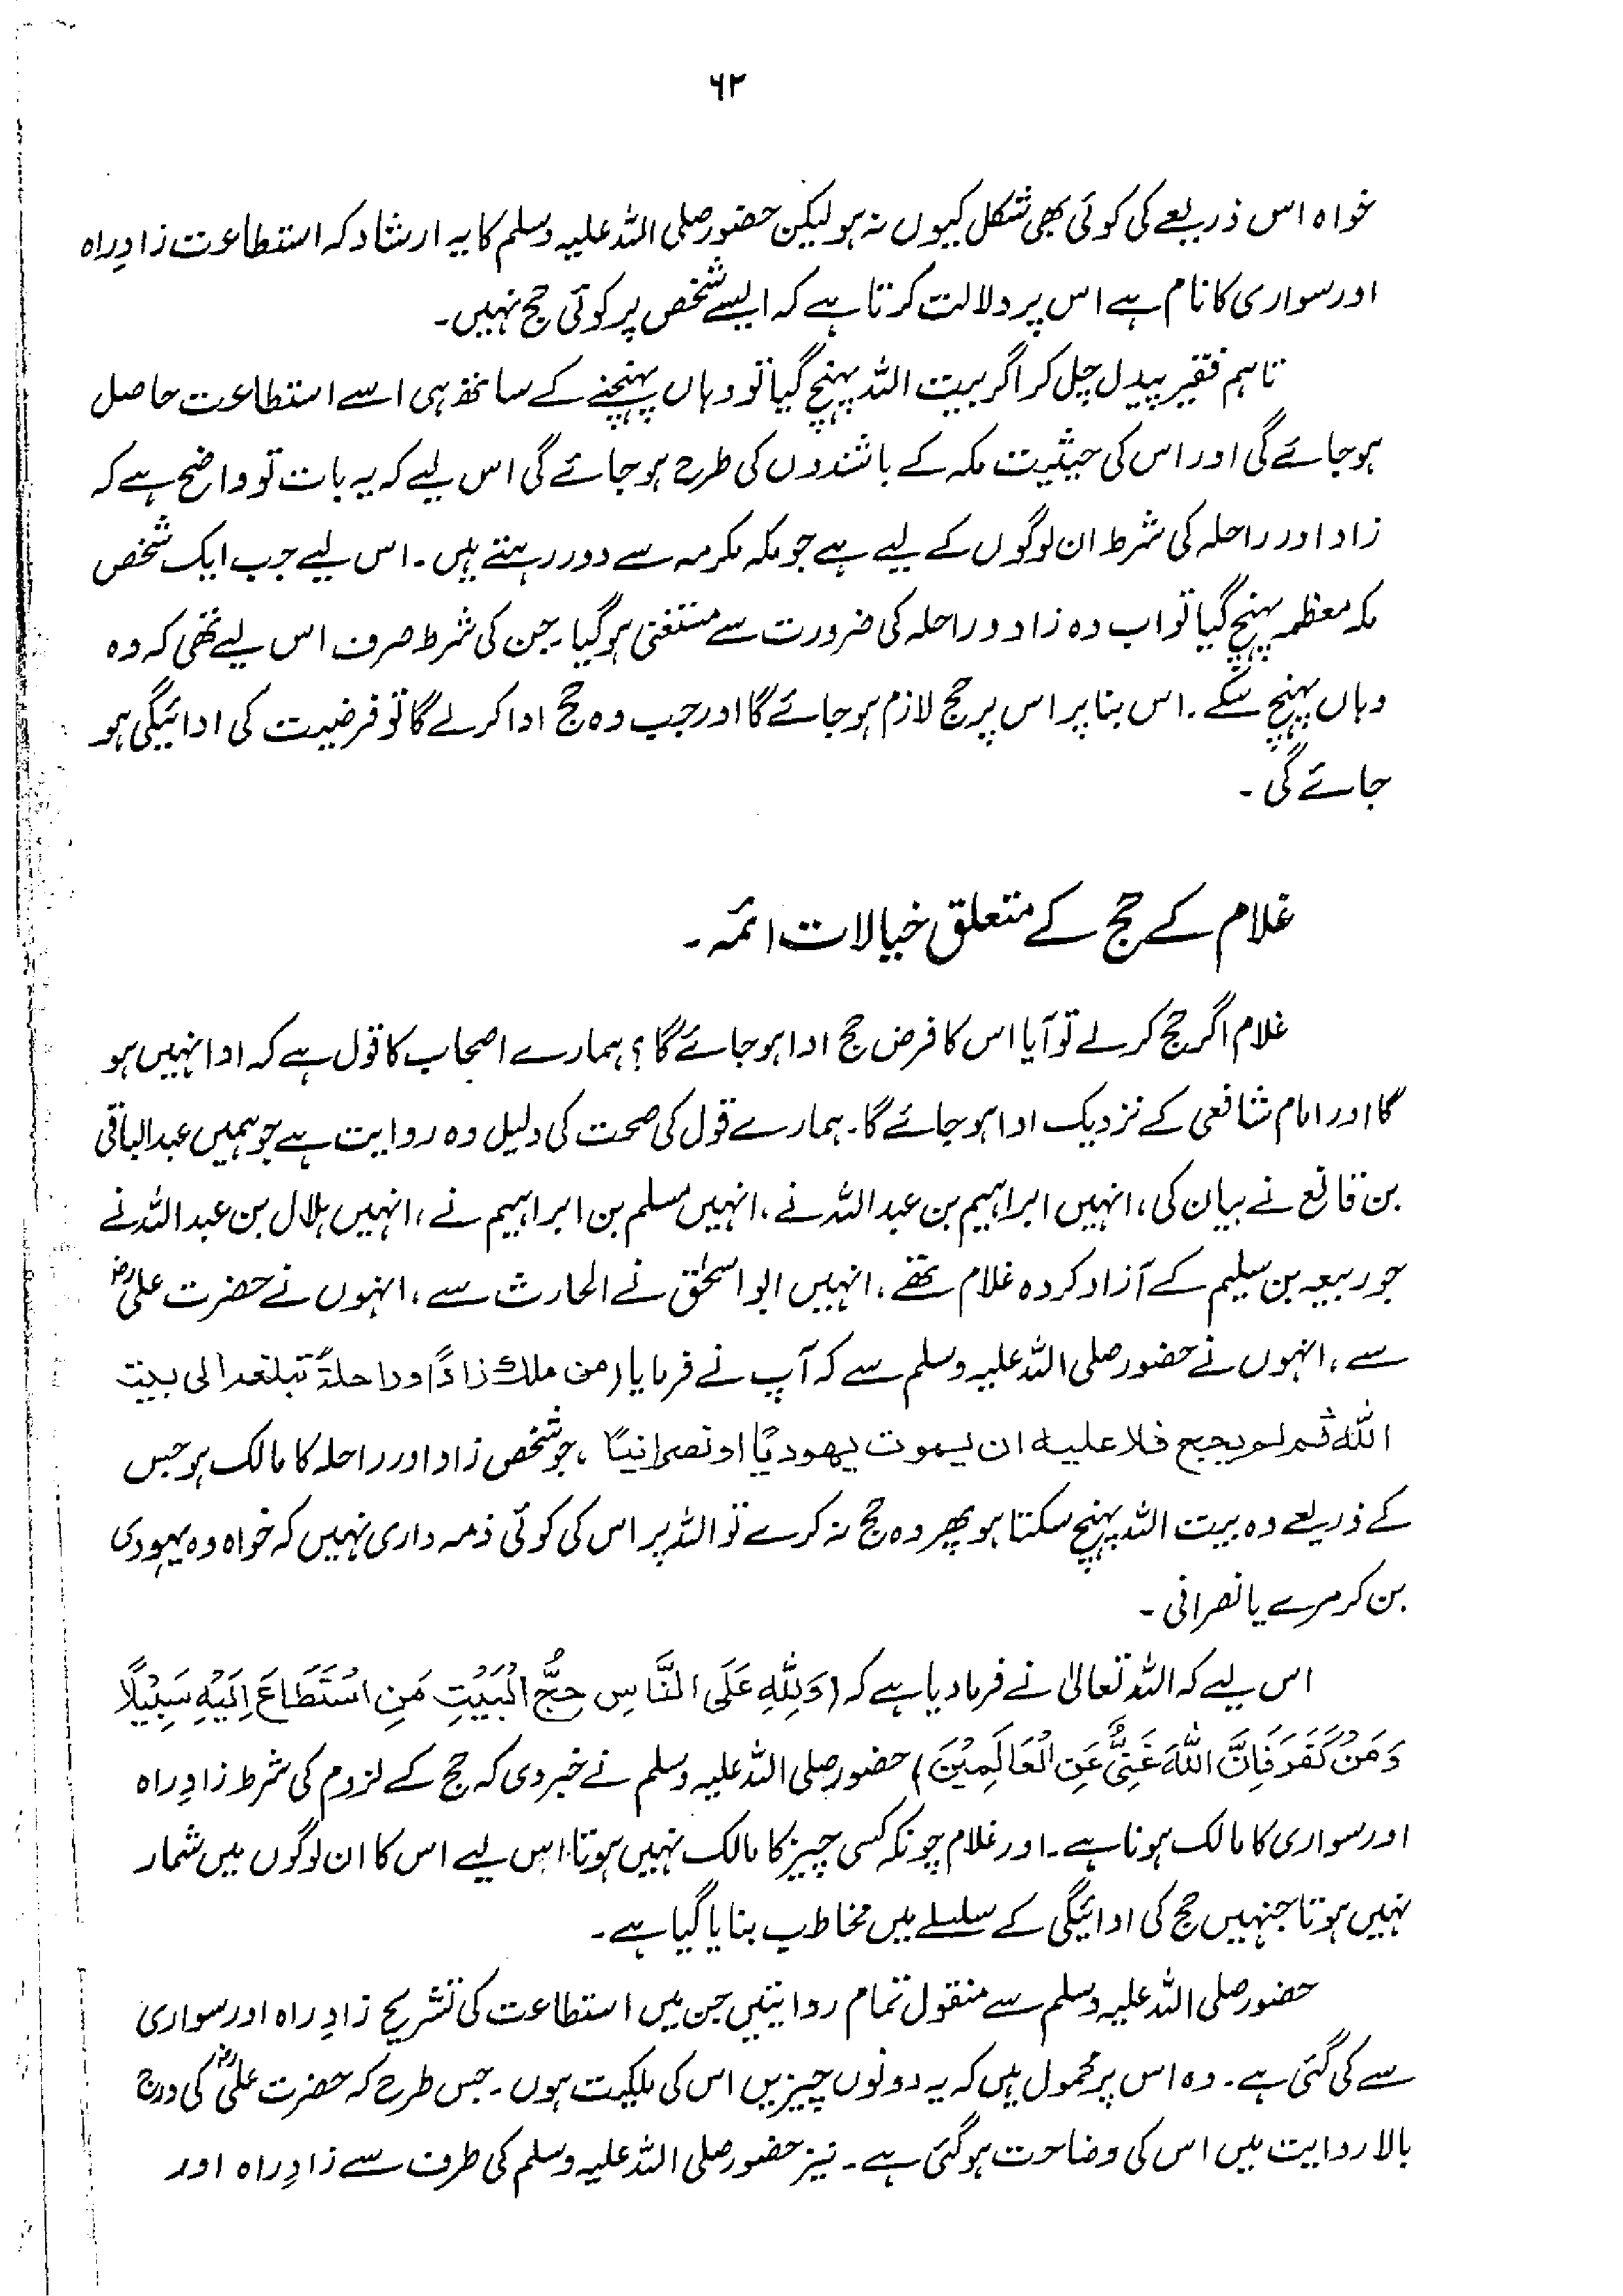 ۶۲
خواہ اس ذریعے کی کوئی بھی شکل کیوں نہ ہو لیکن حضور صلی اللہ علیہ وسلم کا یہ ارشاد کہ استطاعت زادِ راہ
اور سواری کا نام ہے اس پر دلالت کرتا ہے کہ ایسے شخص پر کوئی حج نہیں۔
تاہم فقیر پیدل چل کر اگر بیت اللہ پہنچ گیا تو وہاں پہنچنے کے ساتھ ہی اسے استطاعت حاصل
ہو جائے گی اور اس کی حیثیت مکہ کے باشندوں کی طرح ہو جائے گی اس لیے کہ یہ بات تو واضح ہے کہ
زاد اور راحلہ کی شرط ان لوگوں کے لیے ہے جو مکہ مکرمہ سے دور رہتے ہیں۔ اس لیے جب ایک شخص
مکہ معظمہ پہنچ گیا تو اب وہ زاد و راحلہ کی ضرورت سے مستغنی ہو گیا۔ جن کی شرط صرف اس لیے تھی کہ وہ
وہاں پہنچ سکے۔ اس بنا پر اس پر حج لازم ہو جائے گا اور جب وہ حج ادا کر لے گا تو فرضیت کی ادائیگی ہو
جائے گی۔
غلام کے حج کے متعلق خیالات ائمہ۔
غلام اگر حج کر لے تو آیا اس کا فرض حج ادا ہو جائے گا؟ ہمارے اصحاب کا قول ہے کہ ادا نہیں ہو
گا اور امام شافعی کے نزدیک ادا ہو جائے گا۔ ہمارے قول کی صحت کی دلیل وہ روایت ہے جو ہمیں عبدالباقی
بن قانع نے بیان کی، انہیں ابراہیم بن عبد اللہ نے، انہیں مسلم بن ابراہیم نے، انہیں ہلال بن عبداللہ نے
جو ربیعہ بن سلیم کے آزاد کردہ غلام تھے، انہیں ابو اسحٰق نے الحارث سے، انہوں نے حضرت علیؓ
سے، انہوں نے حضور صلی اللہ علیہ وسلم سے کہ آپ نے فرمایا (من ملک زادًا وراحلةً تبلغہ الی بیت
اللہ ثم لم یحج فلا علیہ ان یموت یھودیًا او نصرانیًا ، جو شخص زاد اور راحلہ کا مالک ہو جس
کے ذریعے وہ بیت اللہ پہنچ سکتا ہو پھر وہ حج نہ کرے تو اللہ پر اس کی کوئی ذمہ داری نہیں کہ خواہ وہ یہودی
بن کر مرے یا نصرانی۔
اس لیے کہ اللہ تعالیٰ نے فرما دیا ہے کہ (وَلِلّٰہِ عَلَی النَّاسِ حِجُّ الْبَیْتِ مَنِ اسْتَطَاعَ اِلَیْہِ سَبِیْلًا
وَمَنْ کَفَرَ فَاِنَّ اللّٰہَ غَنِیٌّ عَنِ الْعَالَمِیْنَ) حضور صلی اللہ علیہ وسلم نے خبر دی کہ حج کے لزوم کی شرط زادِ راہ
اور سواری کا مالک ہونا ہے۔ اور غلام چونکہ کسی چیز کا مالک نہیں ہوتا، اس لیے اس کا ان لوگوں میں شمار
نہیں ہوتا جنہیں حج کی ادائیگی کے سلسلے میں مخاطب بنایا گیا ہے۔
حضور صلی اللہ علیہ وسلم سے منقول تمام روایتیں جن میں استطاعت کی تشریح زادِ راہ اور سواری
سے کی گئی ہے۔ وہ اس پر محمول ہیں کہ یہ دونوں چیزیں اس کی ملکیت ہوں۔ جس طرح کہ حضرت علیؓ کی درج
بالا روایت میں اس کی وضاحت ہو گئی ہے۔ نیز حضور صلی اللہ علیہ وسلم کی طرف سے زادِ راہ اور